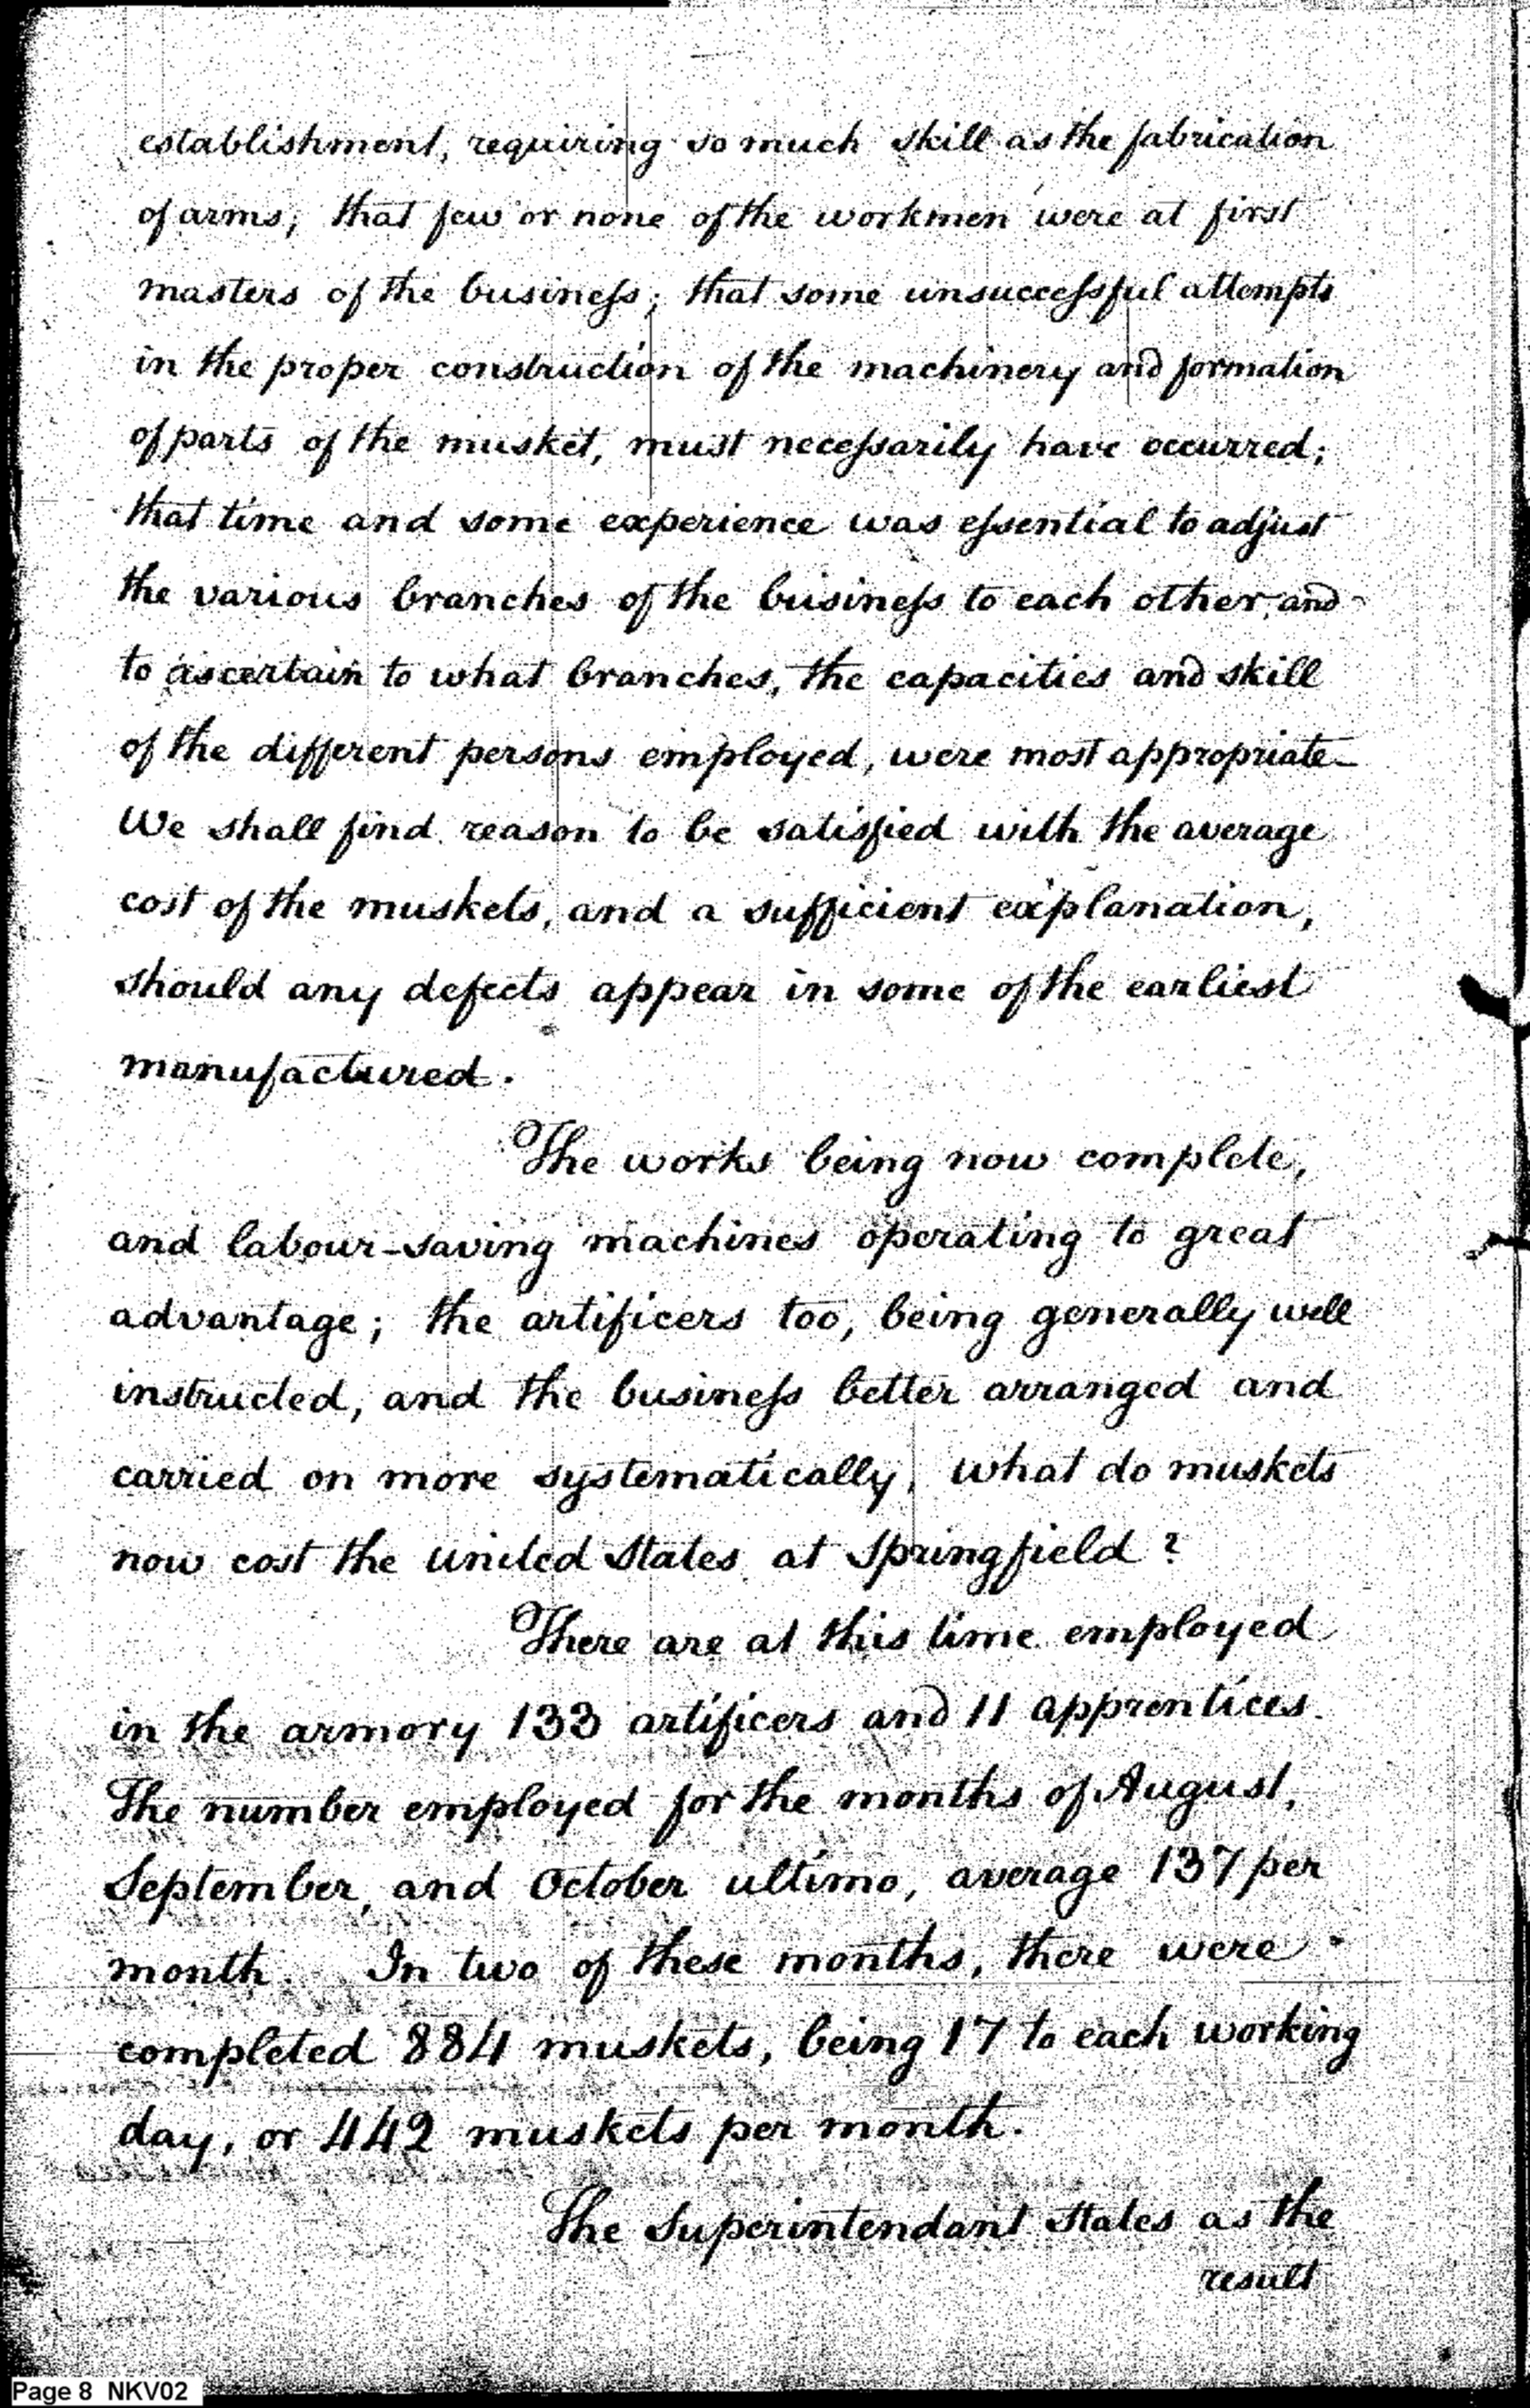 establishment, requiring so much skill as the fabrication
of arms; that few or none of the workmen were at first
masters of the busineſs; that some unsucceſsful attempts
in the proper construction of the machinery and formation
of parts of the musket, must neceſsarily have occurred;
that time and some experience was eſsential to adjust
the various branches of the busineſs to each other, and
to ascertain to what branches, the capacities and skill
of the different persons employed, were most appropriate_
We shall find reason to be satisfied with the average
cost of the muskets, and a sufficient explanation,
should any defects appear in some of the earliest
manufactured.
The works being now complete,
and labour-saving machines operating to great
advantage; the artificers too, being generally well
instructed, and the busineſs better arranged and
carried on more systematically, what do muskets
now cost the united States at Springfield?
There are at this time employed
in the armory 133 artificers and 11 apprentices.
The number employed for the months of August,
September, and October ultimo, average 137 per
month. In two of these months, there were
completed 884 muskets, being 17 to each working
day, or 442 muskets per month.
The Superintendant States as the
result
Page 8 NKV02